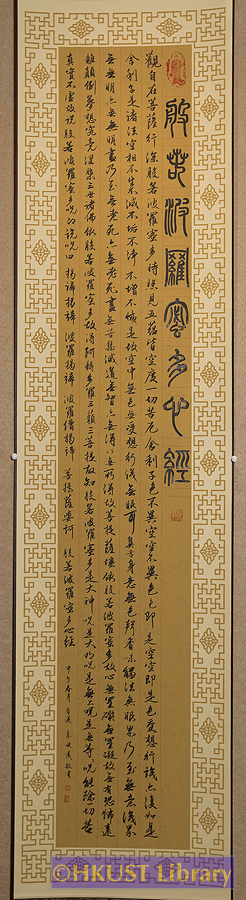 般若波羅蜜多心經
觀自在菩薩行深般若波羅蜜多時照見五蘊皆空度一切苦厄舍利子色不異空空不異色色即是空空即是色受想行識亦復如是
舍利子是諸法空相不生滅不垢不淨不增不減是故空中無色無受想行識無眼耳鼻舌身意無色聲香味觸法無眼界乃至無意識界
無無明亦無無明盡乃至無老死亦無老死盡無苦集滅道無智亦無得以無所得故菩提薩埵依般若波羅蜜多故心無罣礙無罣礙故無有恐怖遠
離顛倒夢想究竟涅槃三世諸佛依般若波羅蜜多故得阿耨多羅三藐三菩提故知般若波羅蜜多是大神咒是大明咒是無上咒是無等咒能除一切苦
真實不虛故說般若波羅蜜多咒即說咒曰 揭諦揭諦 波羅揭諦 波羅僧揭諦 菩提薩婆訶 般若波羅蜜多心經
©HKUST Library